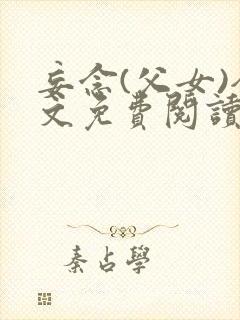 妄念(父女)
文免費閱讀
秦占學